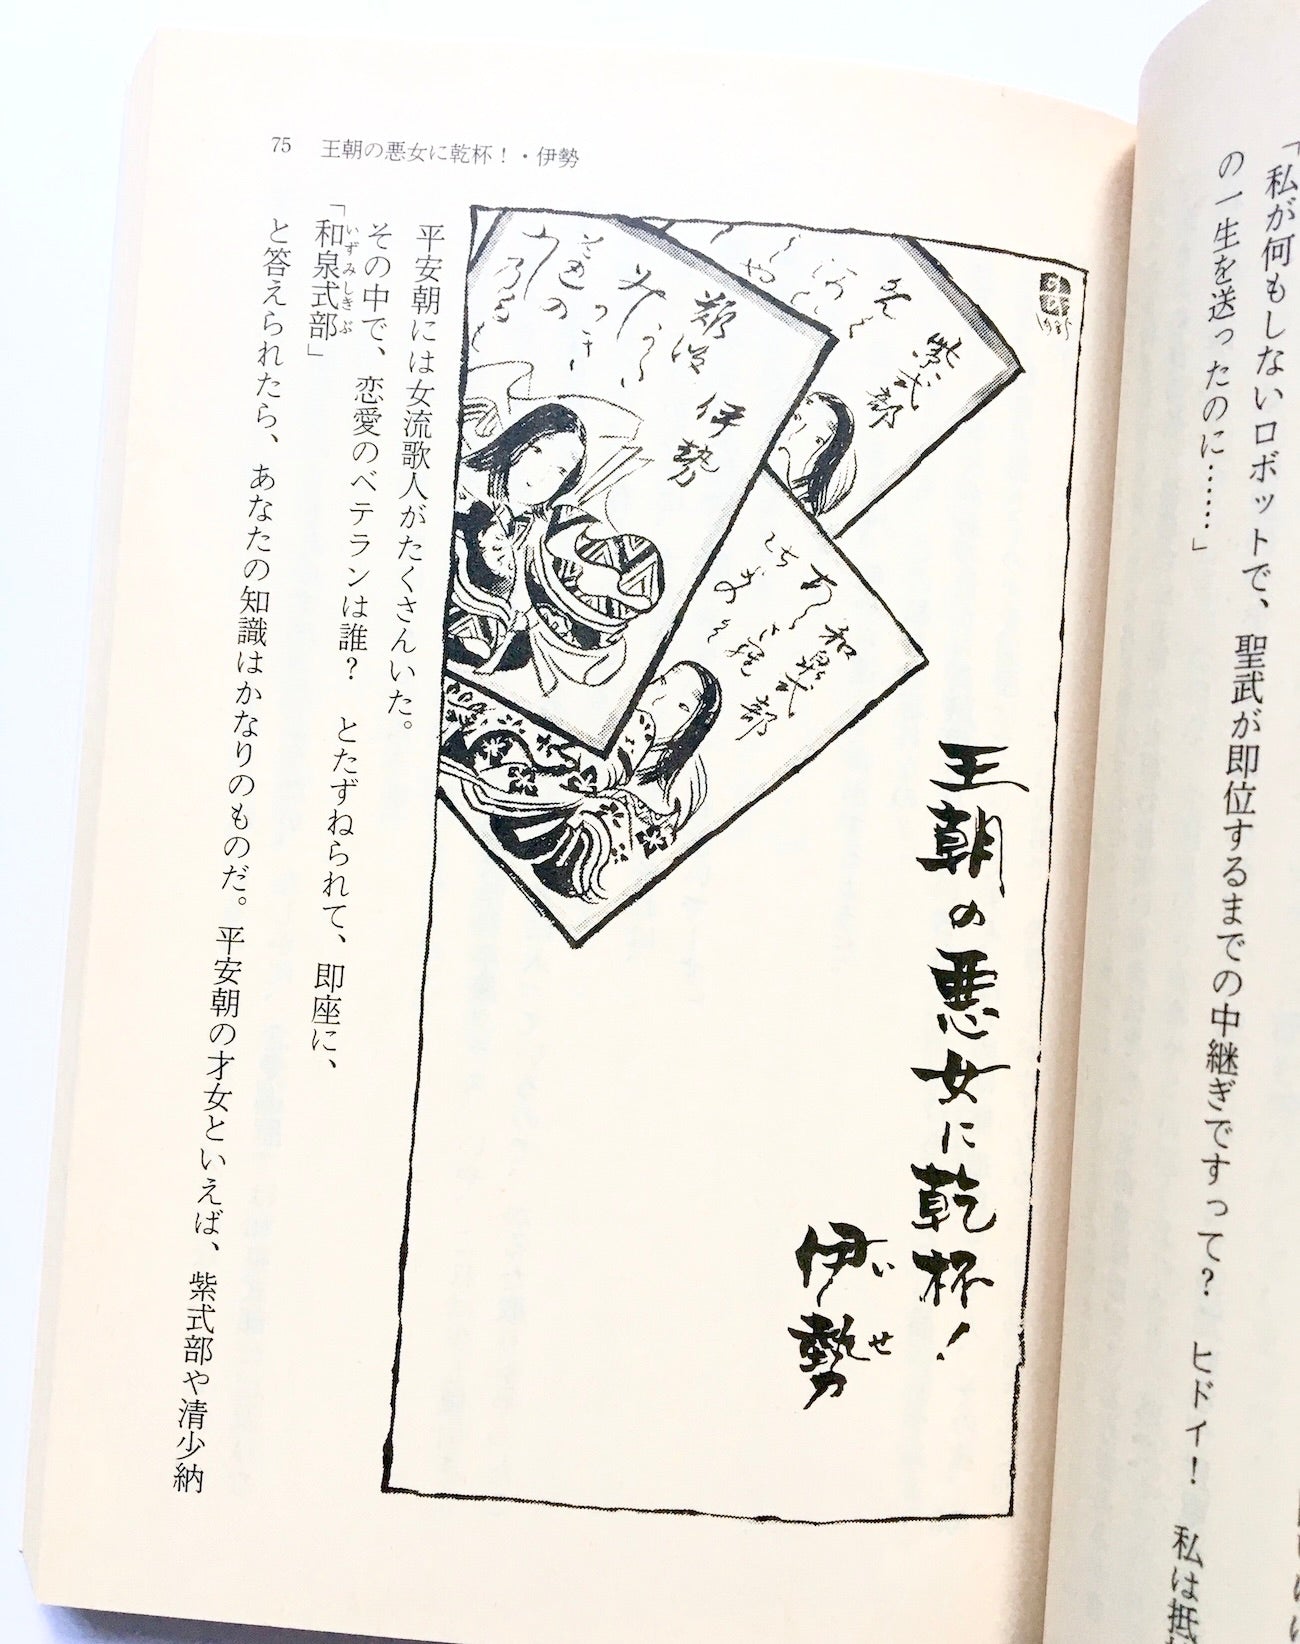 「私が何もしないロボットで、聖武が即位するまでの中継ぎですって？　ヒドイ！　私は抵
の一生を送ったのに……」
75　王朝の悪女に乾杯！・伊勢
王朝の悪女に乾杯！
伊勢
いせ
1985
紫式部
伊勢
和泉式部
平安朝には女流歌人がたくさんいた。
その中で、恋愛のベテランは誰？　とたずねられて、即座に、
「和泉式部」
いずみしきぶ
と答えられたら、あなたの知識はかなりのものだ。平安朝の才女といえば、紫式部や清少納